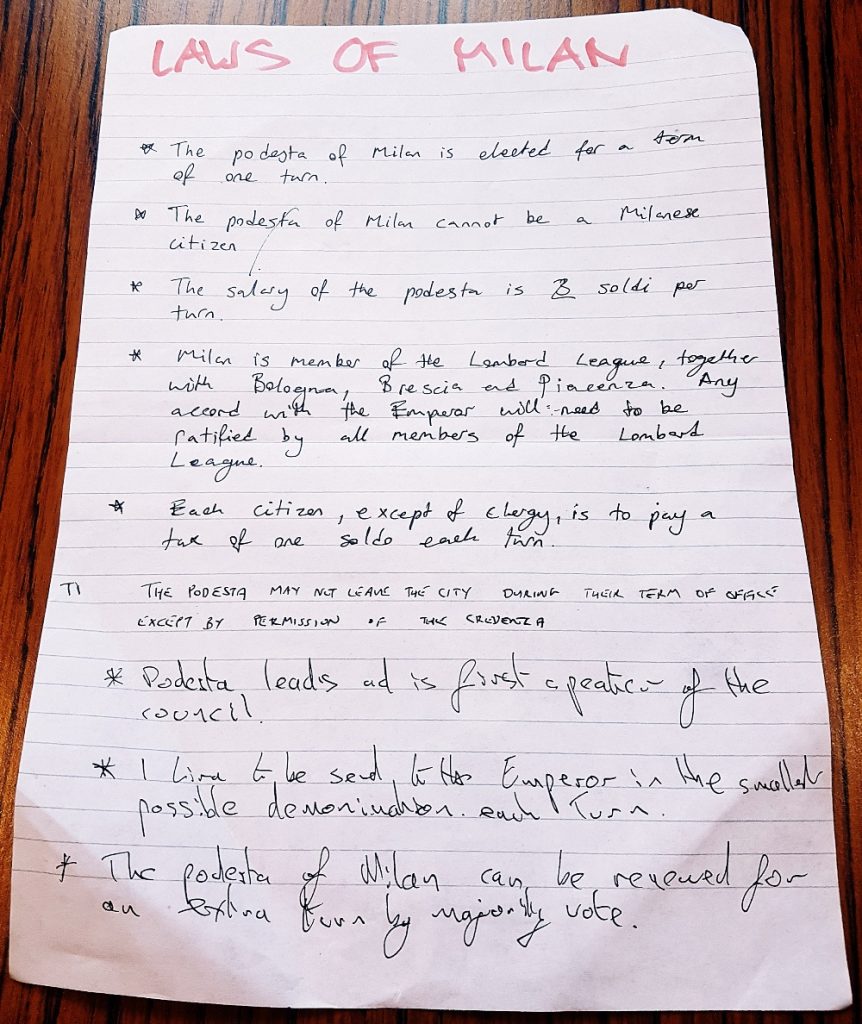 LAWS OF MILAN
* The podesta of Milan is elected for a term
of one turn.
* The podesta of Milan cannot be a Milanese
citizen
* The salary of the podesta is soldi per
turn.
* Milan is member of the Lombard League, together
with Bologna, Brescia and Piacenza. Any
accord with the Emperor will need to be
ratified by all members of the Lombard
League.
* Each citizen, except of clergy, is to pay a
tax of one soldo each turn.
THE PODESTA MAY NOT LEAVE THE CITY DURING THEIR TERM OF OFFICE
EXCEPT BY PERMISSION OF THE CREDENZA
* Podesta leads ad is first speaker of the
council.
* 1 Lira to be send to the Emperor in the smallest
possible denomination each Turn.
* The podesta of Milan can be renewed for
an extra turn by majority vote.